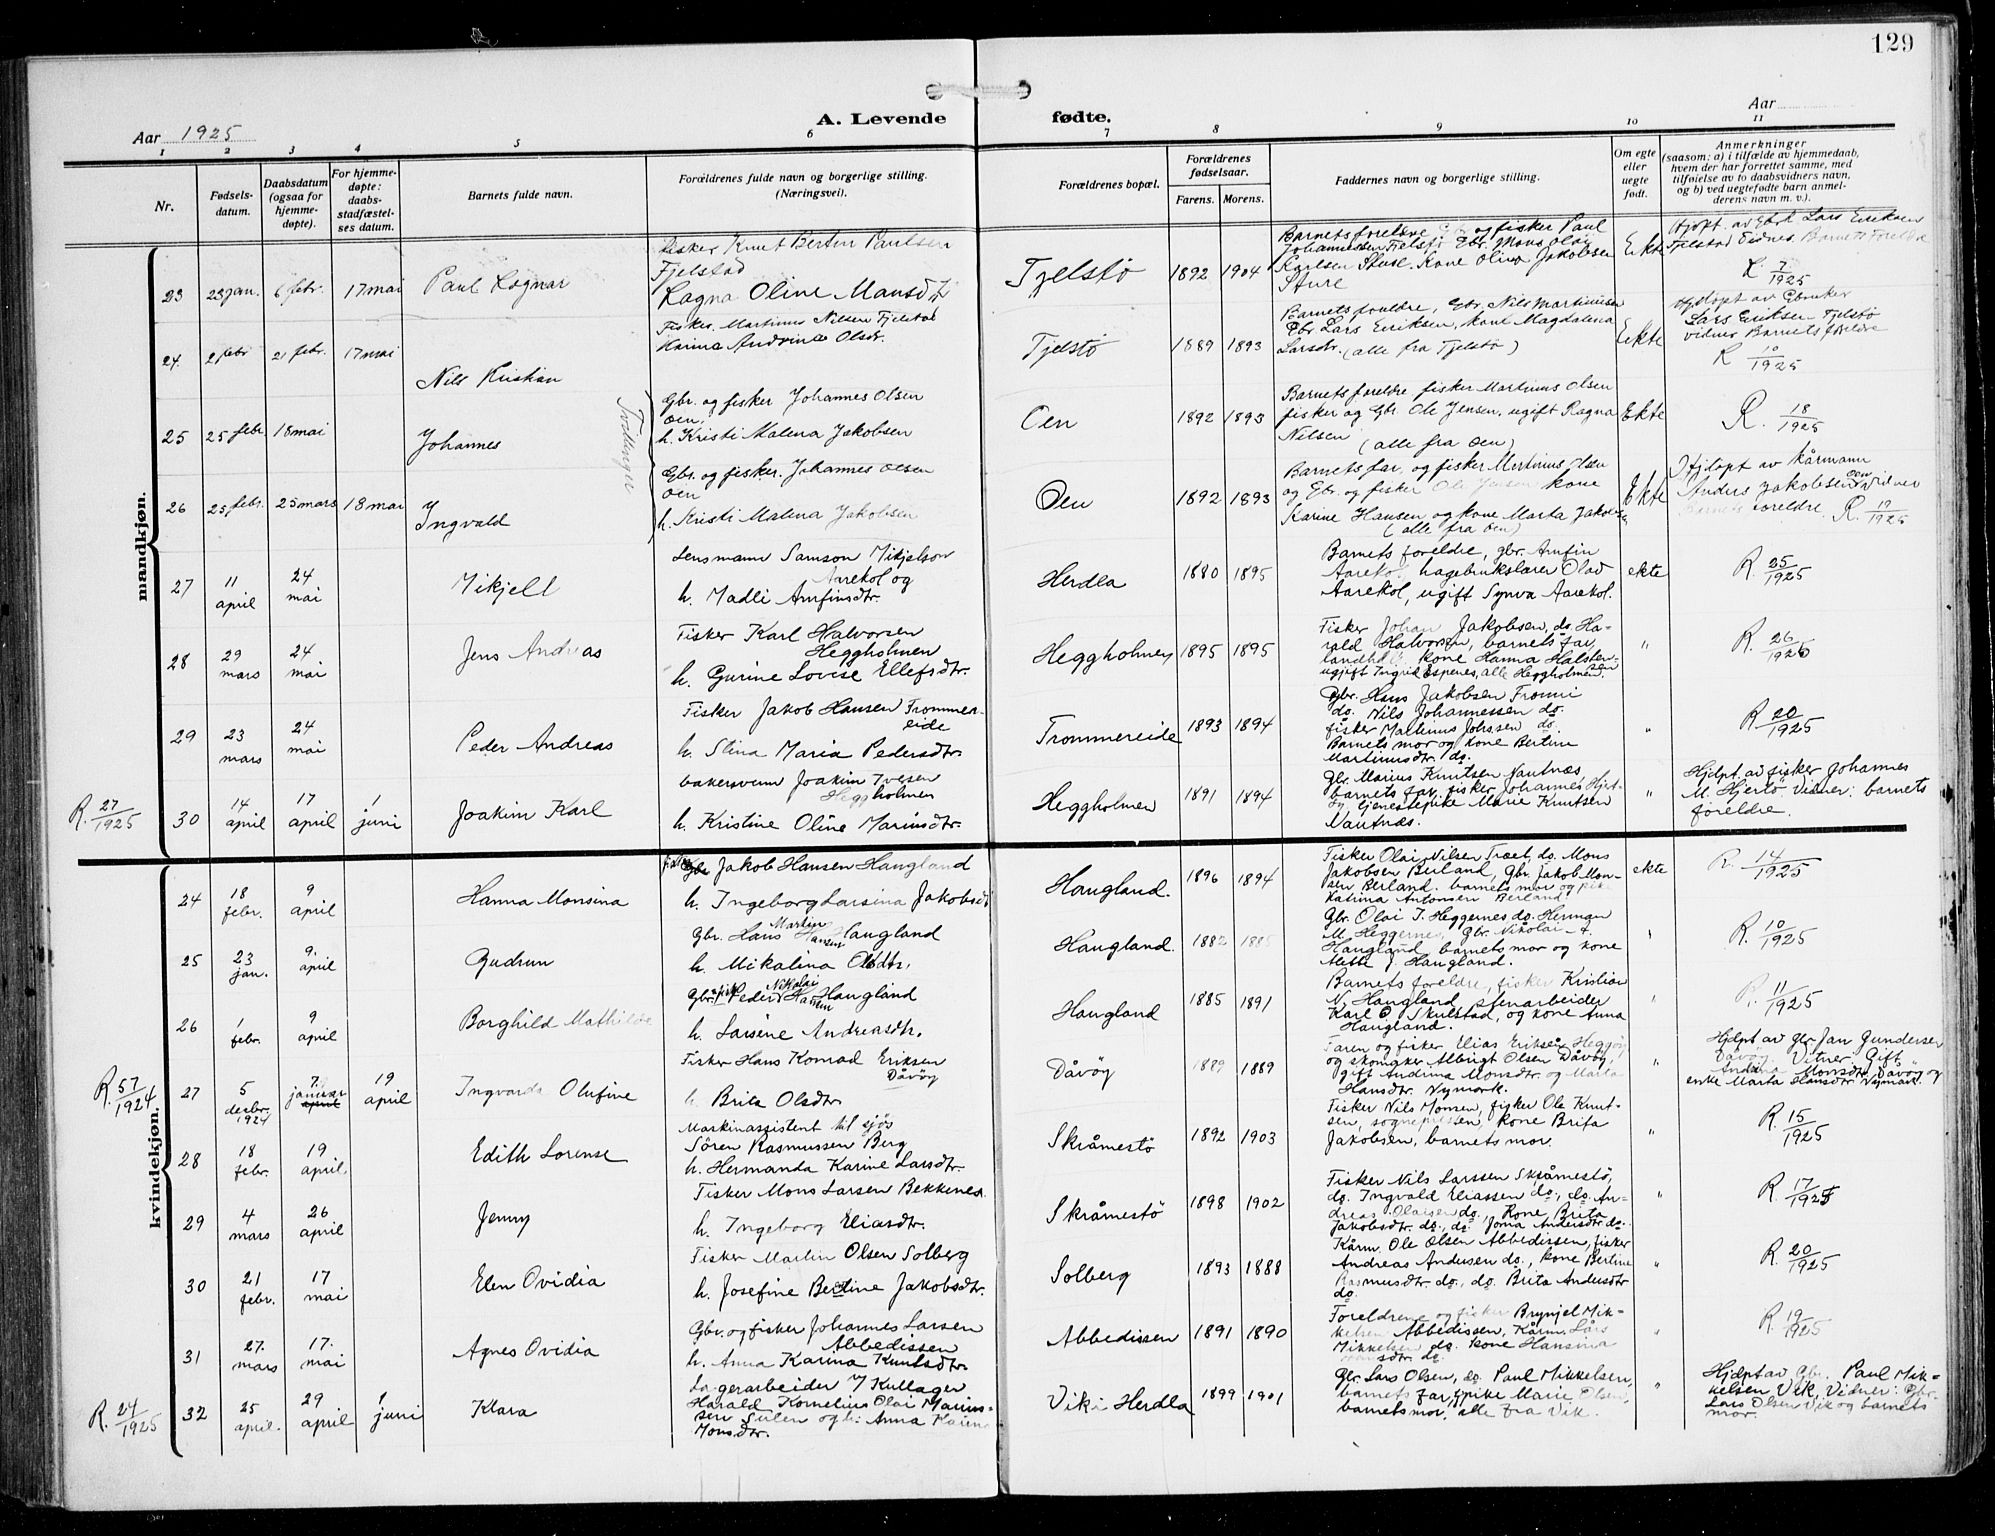 129
Aar 1925
A. Levende fødte.
Aar
1 2 3 4 5 6 7 8 9 10 11
Nr.
Fødsels-
datum.
Daabsdatum
(ogsaa for
hjemme-
døpte).
For hjemme-
døpte:
daabs-
stadfæstel-
ses datum.
Barnets fulde navn.
Forældrenes fulde navn og borgerlige stilling.
(Næringsvei).
Forældrenes bopæl.
Forældrenes
fødselsaar.
Farens. Morens.
Faddernes navn og borgerlige stilling.
Om egte
eller
uegte
født.
Anmerkninger
(saasom: a) i tilfælde av hjemmedaab,
hvem der har forrettet samme, med
tilføielse av to daabsvidners navn,
og b) ved uegtefødte barn anmel-
derens navn m. v.).
mandkjøn.
23 23 jan. 6 febr. 17 mai Paul Ragnar
Fisker Knut Bertin Paulsen
Fjelstad
Ragna Oline Mansdtr
Tjelstø 1892 1904
Barnets foreldre Gbr og fisker Paul
Johannessen Tjelstø Gbr. Mons Olai
Karlsen Sture. Kone Oliva Jakobsen
Sture
Ekte
Hjdpt. av Gbrk Lars Eriksen
Tjelstad Vidner Barnets Foreldre
R 7/1925
24. 2 febr 21 febr. 17 mai Nils Kristian
Fisker Martinus Nilsen Tjelstø
Karina Andrina Olsdr.
Tjelstø 1889 1893
Barnets foreldre, Gbr. Nils Martinusen
Gbr Lars Eriksen, kone Magdalena
Larsdtr. (alle fra Tjelstø)
Ekte
Hjdøpt av Gbruker
Lars Eriksen Tjelstø
Vidner Barnets foreldre
R 10/1925
Tvillinger
25 25 febr 18 mai Johannes
Gbr. og fisker Johannes Olsen
Oen,
h. Kristi Malena Jakobsen
Oen 1892 1893
Barnets foreldre fisker Martinus Olsen
fisker og Gbr Ole Jensen, ugift Ragna
Nilsen (alle fra Oen)
Ekte
R. 18/1925
26 25 febr. 25 mars 18 mai Ingvald
Gbr. og fisker. Johannes Olsen
Oen
h. Kristi Malena Jakobsen
Oen 1892 1893
Barnets far, og fisker Martinus Olsen
og Gbr. og fisker Ole Jensen kone
Karine Hansen og kone Marta Jakobsen
(alle fra Oen)
Ekte
Hjdøpt av Kårmann
Anders Jakobsen Oen Vidner
Barnets foreldre, R. 19/1925
27 11 april 24 mai Mikjell
Lensmann Samson Mikjelson
Aarekol og
h. Madli Arnfinsdtr.
Herdla 1880 1895
Barnets foreldre, gbr. Arnfin
Aarekol, hagebrukslærer Olav
Aarekol, ugift Synva Aarekol.
ekte
R. 25/1925
28 29 mars 24 mai Jens Andreas
Fisker Karl Halvorsen
Heggholmen
h. Gurine Lovise Ellefsdtr.
Heggholmen 1895 1895
Fisker Johan Jakobsen, do. Ha-
rald Halvorsen, barnets far,
kone Hanna Halsten-
sen ugift Ingrid Espenes, alle Heggholmen.
"
R. 26/1925
29 23 mars 24 mai Peder Andreas
Fisker Jakob Hansen Trommer-
eide
h. Stina Maria Pedersdtr.
Trommereide 1893 1894
Gbr. Hans Jakobsen Tromri
do. Nils Johannessen do.
fisker Martinus Johnsen do.
Barnets mor og kone Bertine
Martinusdtr. do.
"
R 20/1925
R. 27/1925 30 14 april 17 april 1 juni Joakim Karl
bakersvenn Joakim Ivesen
Heggholmen
h. Kristine Oline Mariusdtr.
Heggholmen 1891 1894
Gbr. Marius Knutsen Nautnæs,
barnets far, fisker Johannes Hjert-
ø, tjenestepike Marie Knutsen
Nautnæs.
"
Hjdpt. av fisker Johannes
M. Hjertø Vidner: barnets
foreldre.
kvindekjøn.
24 18 febr. 9 april Hanna Monsina
fisker Jakob Hansen Haugland
h. Ingeborg Larsina Jakobsdtr
Haugland. 1896 1894
Fisker Olai Nilsen Træet, do. Mons
Jakobsen Berland, Gbr. Jakob Mon-
sen Berland. barnets mor og pike
Katrina Antonsen Berland.
ekte
R. 14/1925
25 23 jan. 9. april Gudrun
Gbr. Hans Martin Hansen Haugland
h. Mikalina Olsdtr.
Haugland. 1882 1885
Gbr. Olai I. Heggernes do. Herman
M. Heggernes, Gbr. Nikolai A.
Haugland barnets mor og kone
Mette J. Haugland.
R. 10/1925
26 1 febr. 9 april Borghild Mathilde
Gbr. fisk Peder Nikolai Hansen Haugland
h. Larsine Andreasdtr.
Haugland 1885 1891
Barnets foreldre, fisker Kristian
N. Haugland, stenarbeider
Karl O Skulstad, og kone Anna
Haugland.
R. 11/1925
R. 57/1924 27 5 desbr. 1924 7. januar april 19 april Ingvarda Olufine
Fisker Hans Konrad Eriksen
Dåvøy
h. Brita Olsdtr.
Dåvøy 1889 1889
Faren og fisker Elias Eriksen Heggøy
og skomaker Albrigt Olsen Dåvøy,
gift Andrina Monsdtr. og Marta
Hansdtr. Nymark.
"
Hjdpt av gbr Jan Gundersen
Dåvøy. Vitner: Gift
Andrina Monsdtr. Dåvøy og
enke Marta Hansdtr Nymark.
28 18 febr. 19 april. Edith Lorense
Maskinassistent til sjøs
Sören Rasmussen Berg
h. Hermanda Karine Larsdtr.
Skråmestö 1892 1903
Fisker Nils Monsen, fisker Ole Knut-
sen, sogneprest, kone Brita
Jakobsen, barnets mor.
"
R. 15/1925
29 4 mars 26 april Jenny
Fisker Mons Larsen Bekkenes.
h. Ingeborg Eliasdtr.
Skråmestö 1898 1902
Fisker Nils Larssen Skråmestö,
do. Ingvald Eliassen do., do. An-
dreas Olaisen do., Kone Brita
Jakobsdtr. do., do. Joma Andersdtr do.
"
R. 17/1925
30 21 febr. 17 mai Elen Ovidia
Fisker Martin Olsen Solberg
h. Josefine Bertine Jakobsdtr.
Solberg 1893 1888
Kårm. Ole Olsen Abbedissen, fisker
Andreas Andersen do., kone Bertine
Rasmusdtr. do., do. Brita Andersdtr
do.
"
R. 20/1925
31 27. mars 17. mai Agnes Ovidia
Gbr. og fisker Johannes Larsen
Abbedissen
h. Anna Karina Knutsdtr.
Abbedissen 1891 1890
Foreldrene og fisker Brynjel Mik-
kelsen Abbedissen, Kårm. Lars
Mikkelsen do. kone Hansina
sdtr. do.
"
R. 19/1925
R. 24/1925 32 25 april. 29 april 1 juni Klara
Lagerarbeider v/ Kullager
Harald Kornelius Olai Marius-
sen Sulen og h: Anna Karina
Monsdtr.
Vik i Herdla 1899 1901
Gbr. Lars Olsen, do. Paul Mikkelsen,
barnets far, pike Marie Olsen,
barnets mor, alle fra Vik.
"
Hjdpt av Gbr. Paul Mik-
kelsen Vik, Vidner: Gbr.
Lars Olsen Vik og barnets
mor.